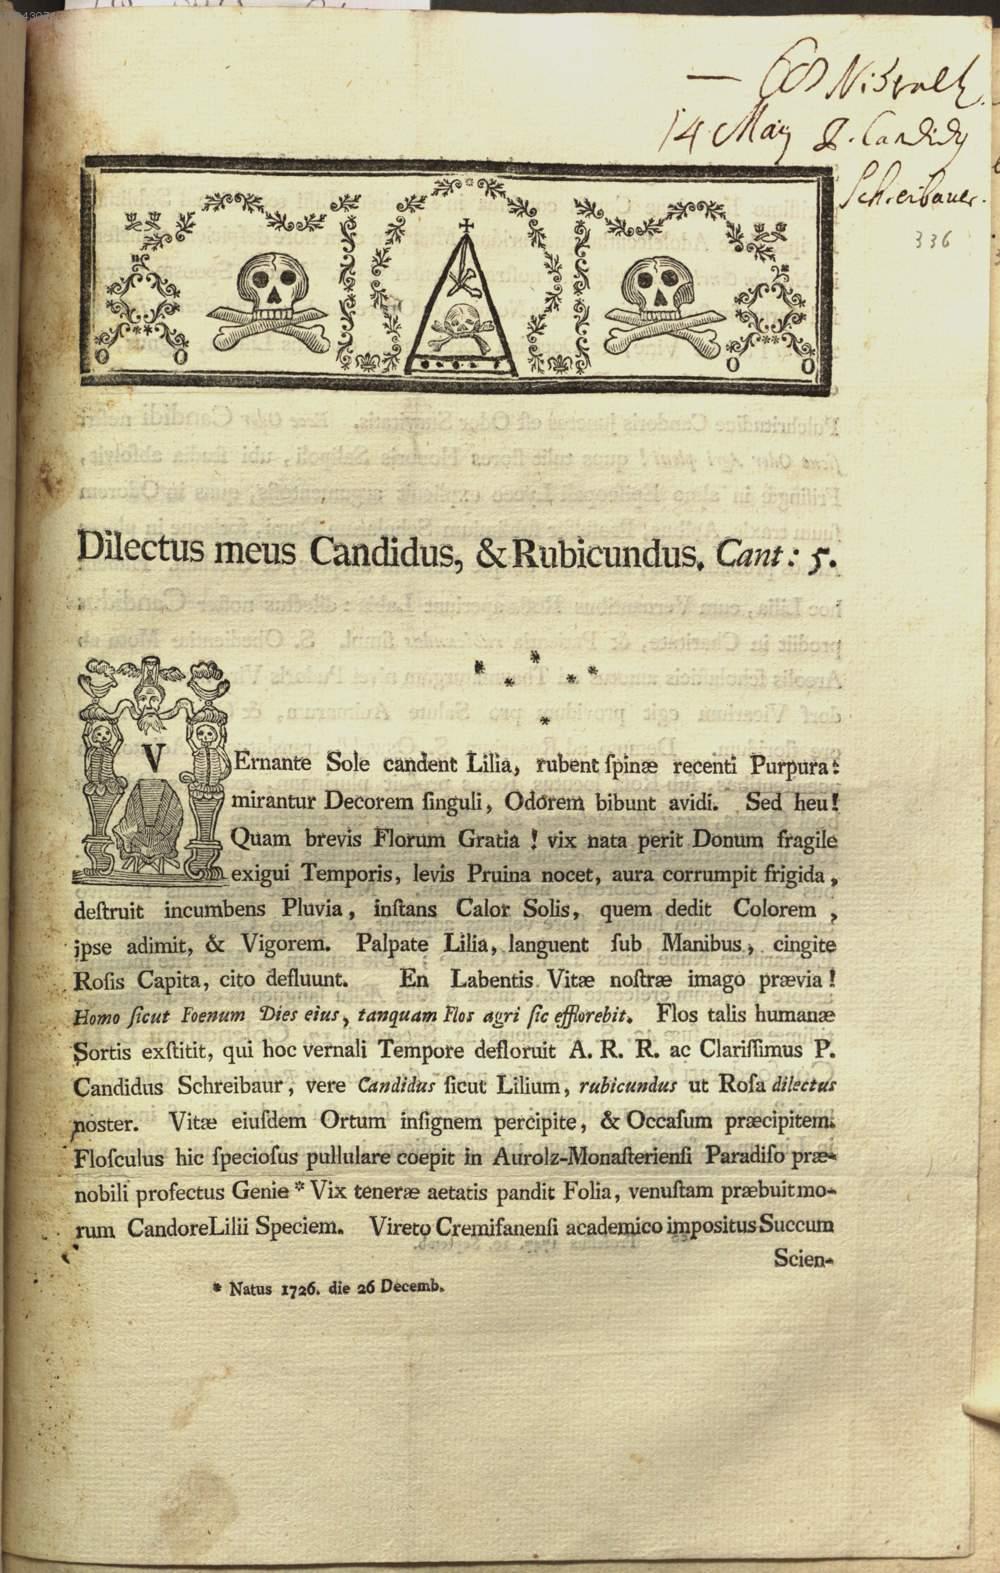 14 May P. Candidq
Schreibauer.
336
Dilectus meus Candidus, & Rubicundus. Cant: 5.
* * * * * *
VErnante Sole candent Lilia, rubent ſpinæ recenti Purpura:
mirantur Decorem ſinguli, Odorem bibunt avidi. Sed heu!
Quam brevis Florum Gratia! vix nata perit Donum fragile
exigui Temporis, levis Pruina nocet, aura corrumpit frigida,
deſtruit incumbens Pluvia, inſtans Calor Solis, quem dedit Colorem,
ipse adimit, & Vigorem. Palpate Lilia, languent ſub Manibus, cingite
Roſis Capita, cito defluunt. En Labentis Vitæ noſtræ imago prævia!
Homo ſicut Foenum Dies eius, tanquam Flos agri ſic efflorebit. Flos talis humanæ
Sortis exſtitit, qui hoc vernali Tempore defloruit A. R. R. ac Clariſſimus P.
Candidus Schreibaur, vere Candidus ſicut Lilium, rubicundus ut Roſa dilectus
noster. Vitæ eiuſdem Ortum inſignem percipite, & Occaſum præcipitem.
Floſculus hic ſpecioſus pullulare coepit in Aurolz-Monaſterienſi Paradiſo præ-
nobili profectus Genie * Vix teneræ aetatis pandit Folia, venuſtam præbuit mo-
rum Candore Lilii Speciem. Vireto Cremifanenſi academico impositus Succum
Scien-
* Natus 1726. die 26 Decemb.